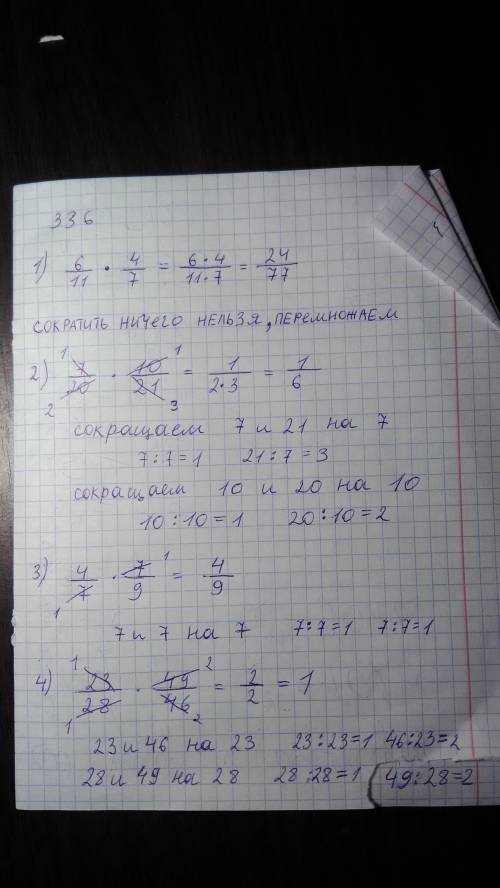 336
1) 6/11 · 4/7 = 6·4/11·7 = 24/77
СОКРАТИТЬ НИЧЕГО НЕЛЬЗЯ, ПЕРЕМНОЖАЕМ
2) 1 7/20 2 · 10 1/21 3 = 1/2·3 = 1/6
сокращаем 7 и 21 на 7
7:7=1 21:7=3
сокращаем 10 и 20 на 10
10:10=1 20:10=2
3) 4/7 1 · 7 1/9 = 4/9
7 и 7 на 7 7:7=1 7:7=1
4) 1 23/28 1 · 49 2/46 2 = 2/2 = 1
23 и 46 на 23 23:23=1 46:23=2
28 и 49 на 28 28:28=1 49:28=2